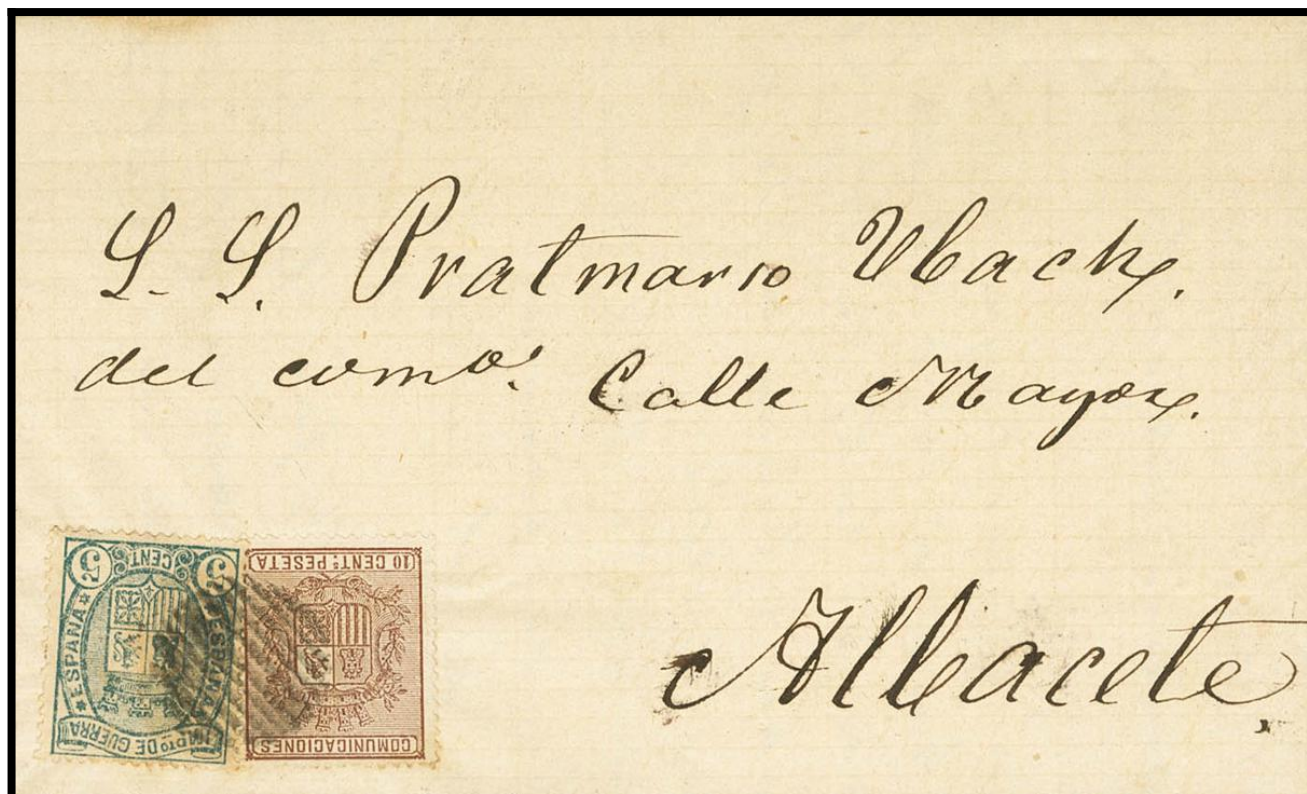 S. S. Pratmarso Ubach.
del comº. Calle Mayor.
Albacete.
5 CENT. 5
ESPAÑA
ESPAÑA
IMPTO DE GUERRA
10 CENTS PESETA
COMUNICACIONES